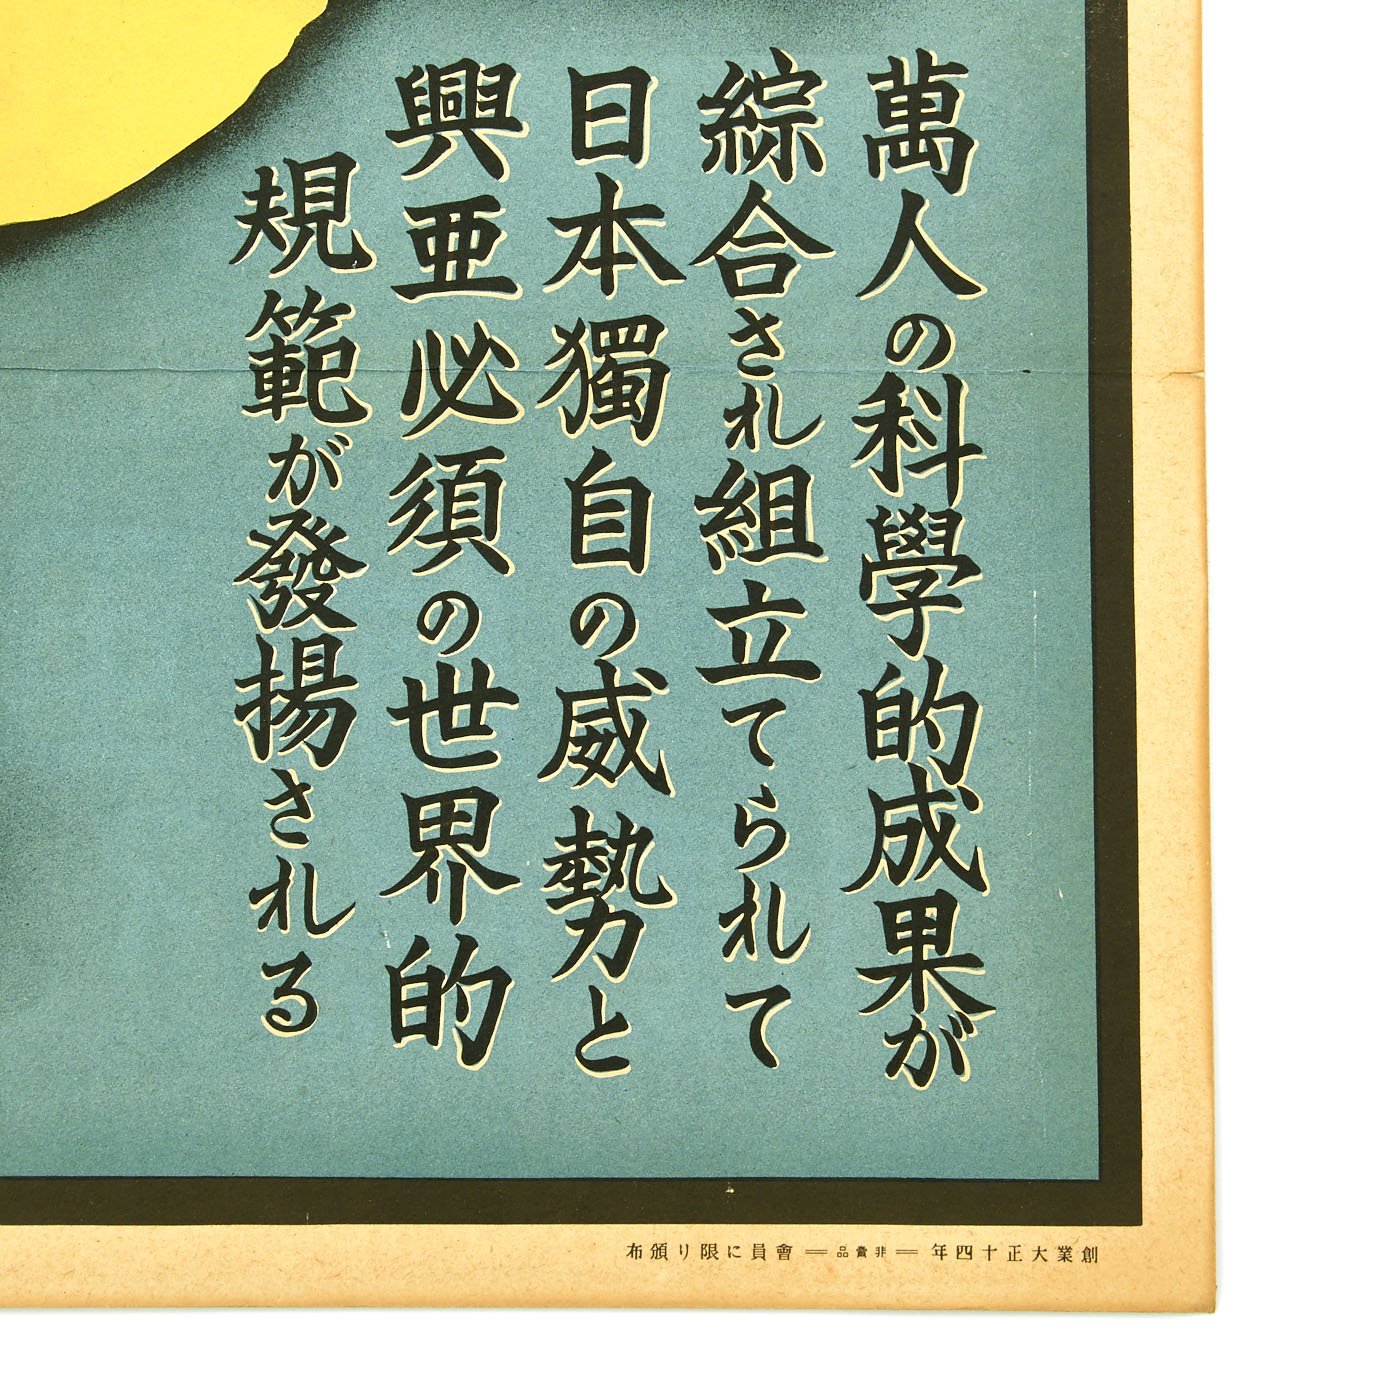 萬人の科學的成果が
綜合され組立てられて
日本獨自の威勢と
興亜必須の世界的
規範が發揚される
創業大正十四年 ══ 非賣品 ══ 會員に限り頒布